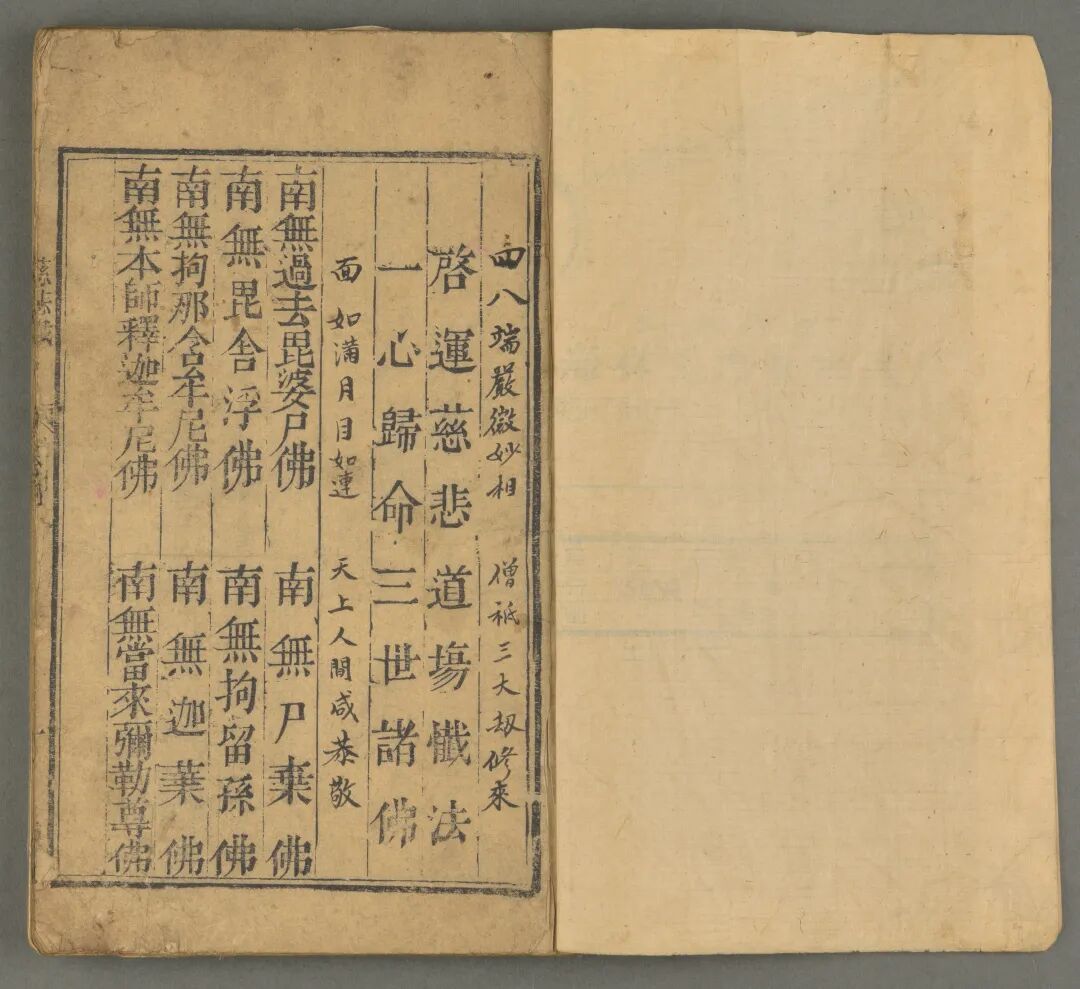 四八端嚴微妙相 僧祇三大劫修來
啓運慈悲道塲懺法
一心歸命三世諸佛
面如滿月目如連 天上人間咸恭敬
南無過去毘婆尸佛 南無尸棄佛
南無毘舍浮佛 南無拘留孫佛
南無拘那含牟尼佛 南無迦葉佛
南無本師釋迦牟尼佛 南無當來彌勒尊佛